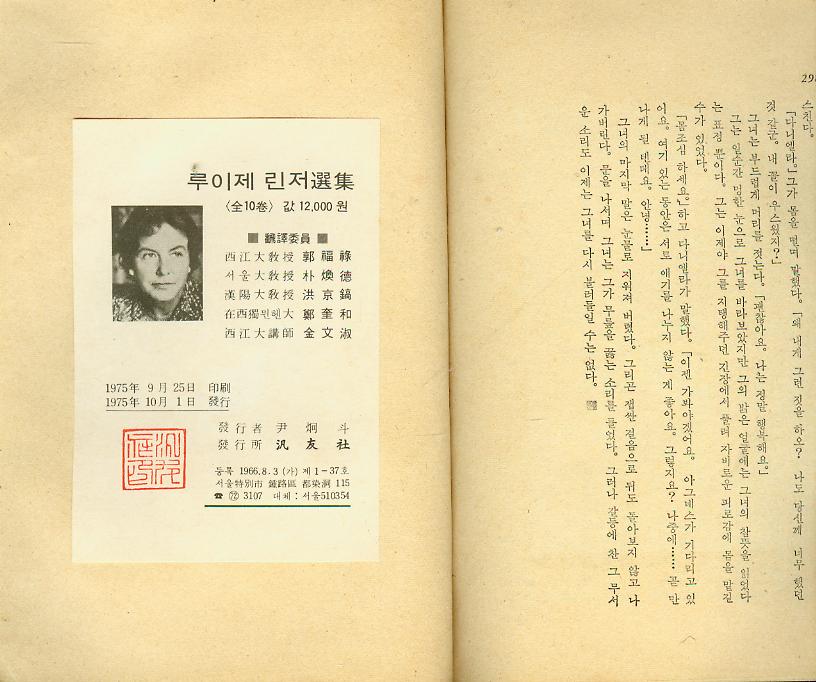 스친다.
「다니엘라.」 그가 몸을 떨며 말했다. 「왜 내게 그런 짓을 하오? 나도 당신께 너무 했던
것 같군. 내 꼴이 우스웠지?」
그녀는 부드럽게 머리를 젓는다. 「괜찮아요. 나는 정말 행복해요.」
그는 일순간 멍한 눈으로 그녀를 바라보았지만 그의 밝은 얼굴에는 그녀의 참뜻을 읽었다
는 표정 뿐이다. 그는 이제야 그를 지탱해주던 긴장에서 풀려 자비로운 피로감에 몸을 맡길
수가 있었다.
「몸조심 하세요.」하고 다니엘라가 말했다. 「이젠 가봐야겠어요. 아그네스가 기다리고 있
어요. 여기 있는 동안은 서로 얘기를 나누지 않는 게 좋아요. 그렇지요? 나중에…… 곧 만
나게 될 텐데요. 안녕……」
그녀의 마지막 말은 눈물로 지워져 버렸다. 그리곤 잽싼 걸음으로 뒤도 돌아보지 않고 나
가버린다. 문을 나서며 그녀는 그가 무릎을 꿇는 소리를 들었다. 그러나 갈등에 찬 그 무서
운 소리도 이제는 그녀를 다시 불러들일 수는 없다.
루이제 린저選集
〈全10卷〉 값 12,000 원
■ 飜譯委員 ■
西江大敎授 郭福祿
서울大敎授 朴煥德
漢陽大敎授 洪京鎬
在西獨뮌헨大 鄭奎和
西江大講師 金文淑
1975年 9月 25日 印刷
1975年 10月 1日 發行
發行者 尹炯斗
發行所 汎友社
등록 1966.8.3 (가) 제1-37호
서울特別市 鍾路區 都染洞 115
☎ 72 3107 대체:서울510354